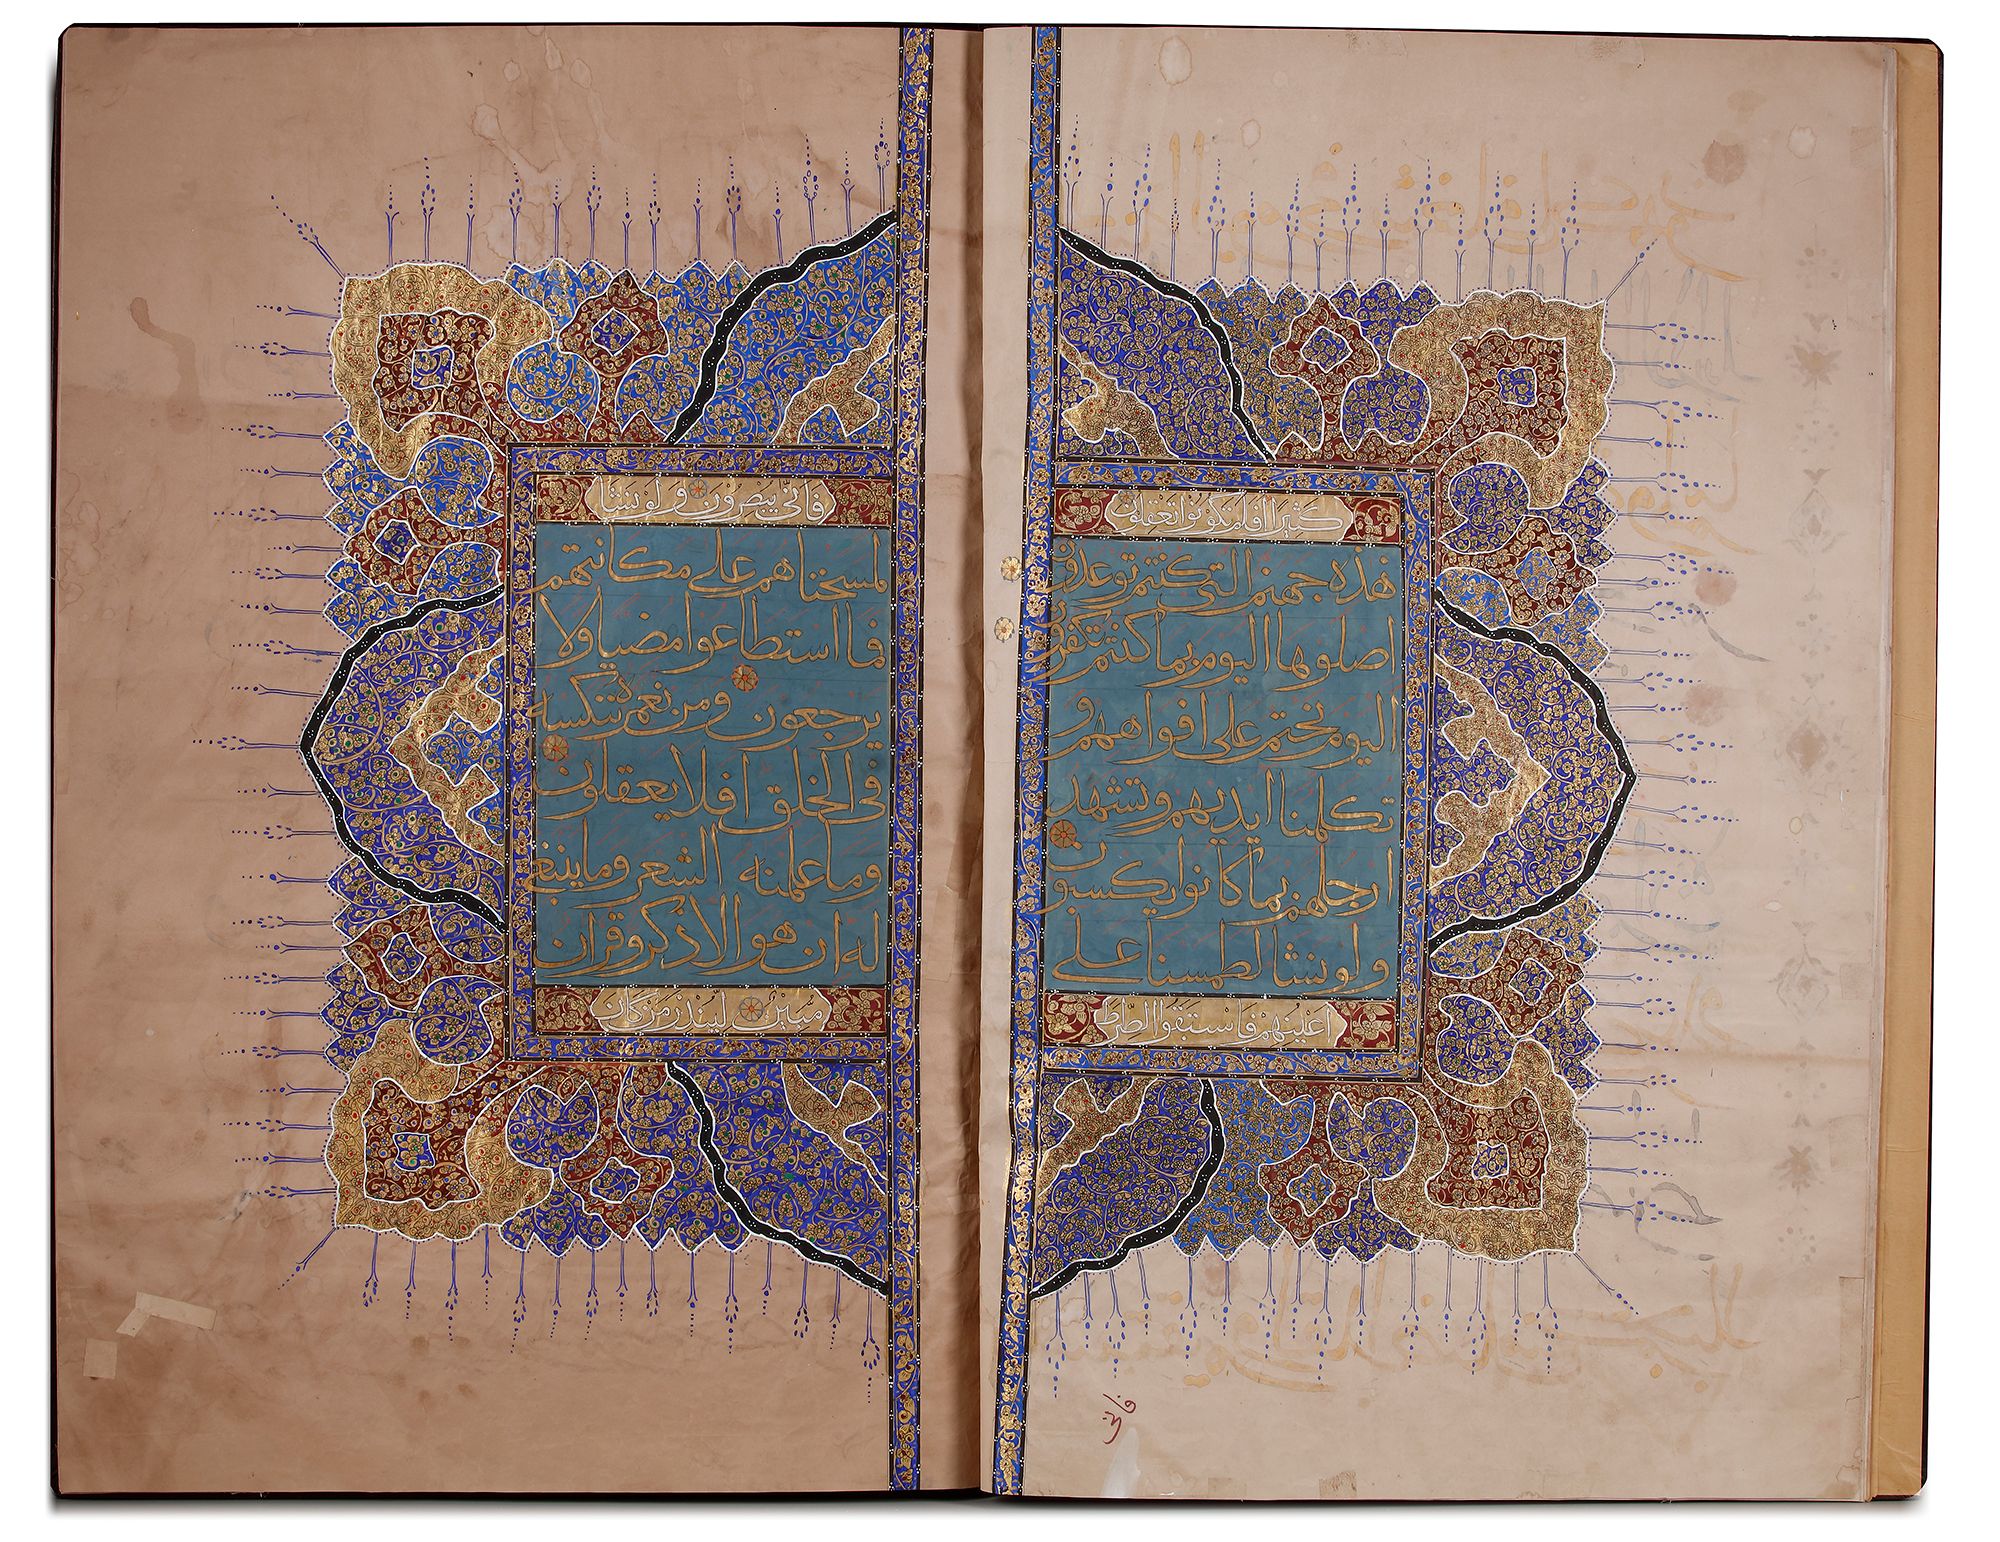 كثيرا افلم تكونوا تعقلون
هذه جهنم التى كنتم توعدون
اصلوها اليوم بما كنتم تكفرون
اليوم نختم على افواههم و
تكلمنا ايديهم وتشهد
ارجلهم بما كانوا يكسبون
ولو نشا لطمسنا على
اعلينهم فاستبقوا الصرط
فانى يبصرون ولو نشا
لمسخناهم على مكانتهم
فما استطاعوا مضيا ولا
يرجعون ومن نعمره ننكسه
فى الخلق افلا يعقلون
وما علمنه الشعر وما ينبغى
له ان هو الا ذكر وقران
مبين لينذر من كان
فانى